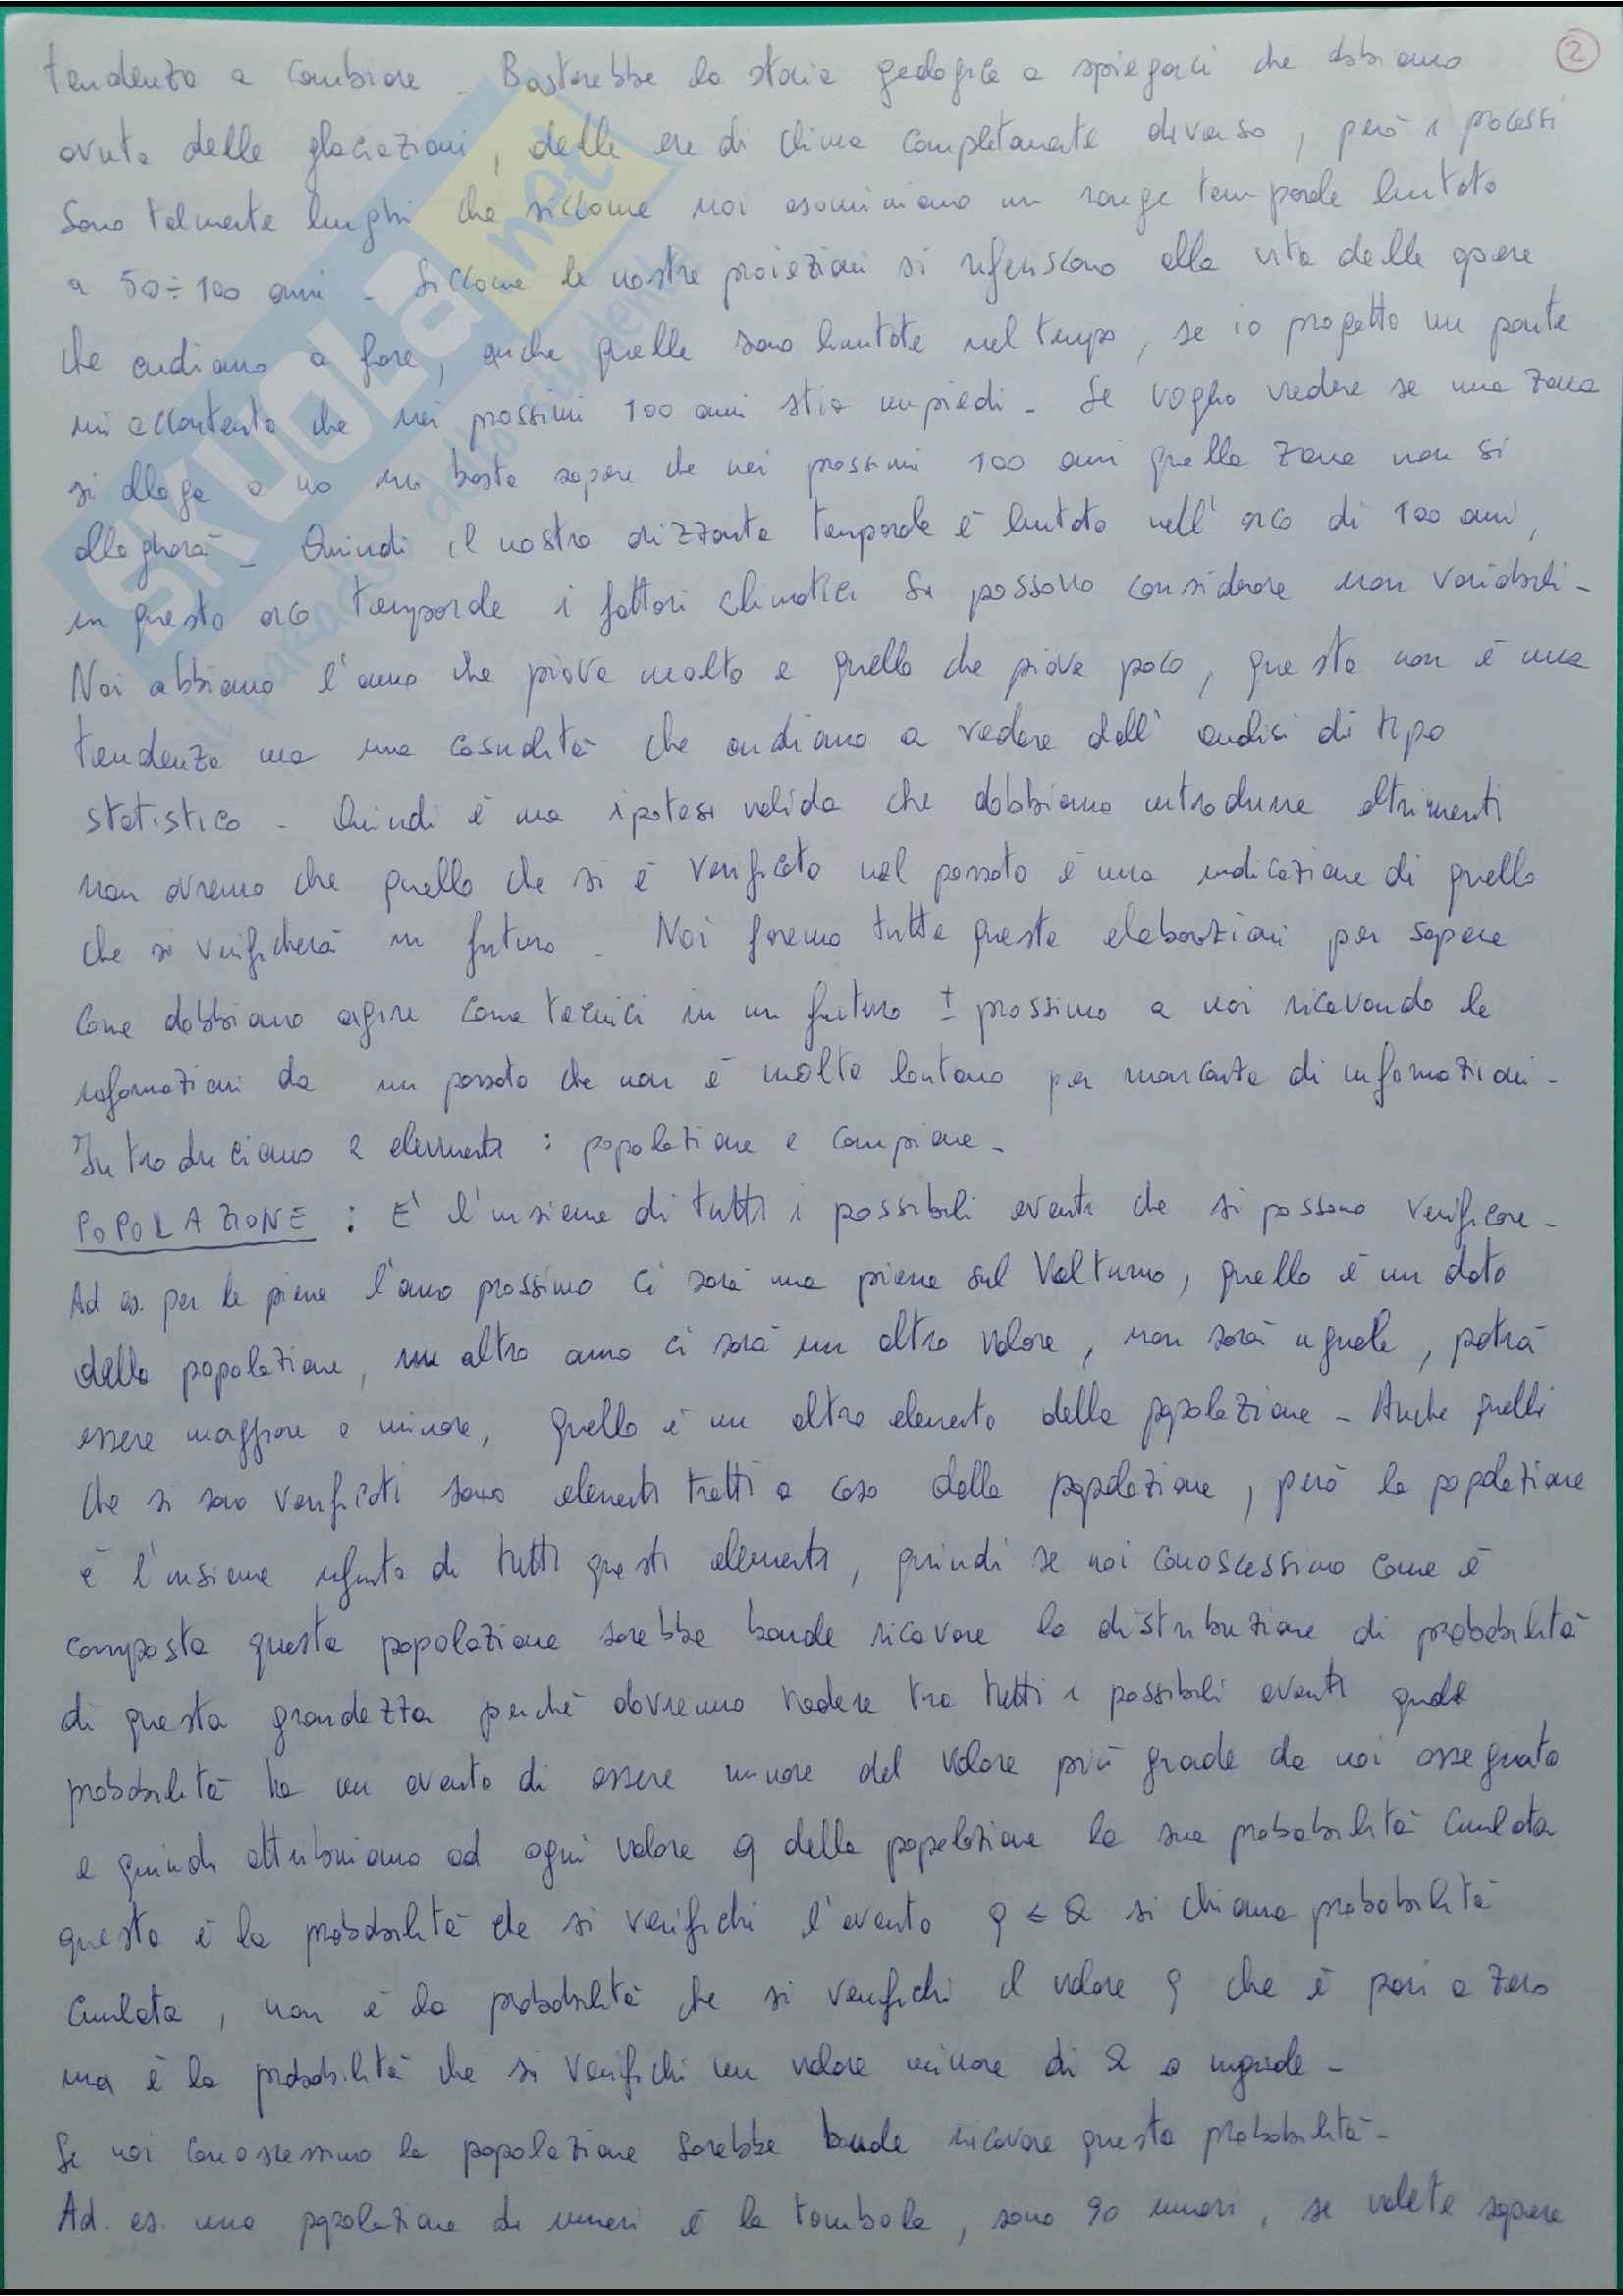 2
tendenza a cambiare - Basterebbe la storia geologica a spiegarci che abbiamo
avuto delle glaciazioni, delle ere di clima completamente diverso, però i processi
sono talmente lunghi che siccome noi esaminiamo un range temporale limitato
a 50÷100 anni - Siccome le nostre proiezioni si riferiscono alla vita delle opere
che andiamo a fare, anche quelle sono limitate nel tempo, se io progetto un ponte
mi accontento che nei prossimi 100 anni stia in piedi - Se voglio vedere se una zona
si allaga o no mi basta sapere che nei prossimi 100 anni quella zona non si
allagherà - Quindi il nostro orizzonte temporale è limitato nell' arco di 100 anni,
in questo arco temporale i fattori climatici si possono considerare non variabili -
Noi abbiamo l'anno che piove molto e quello che piove poco, questa non è una
tendenza ma una casualità che andiamo a vedere dall' analisi di tipo
statistico - Quindi è una ipotesi valida che dobbiamo introdurre altrimenti
non avremo che quello che si è verificato nel passato è una indicazione di quello
che si verificherà in futuro - Noi faremo tutte queste elaborazioni per sapere
come dobbiamo agire come tecnici in un futuro ± prossimo a noi ricavando le
informazioni da un passato che non è molto lontano per mancanza di informazioni -
Introduciamo 2 elementi : popolazione e campione -
POPOLAZIONE : E' l'insieme di tutti i possibili eventi che si possono verificare -
Ad es. per le piene l'anno prossimo ci sarà una piena sul Volturno, quello è un dato
della popolazione, un altro anno ci sarà un altro valore, non sarà uguale, potrà
essere maggiore o minore, quello è un altro elemento della popolazione - Anche quelli
che si sono verificati sono elementi tratti a caso dalla popolazione, però la popolazione
è l'insieme infinito di tutti questi elementi, quindi se noi conoscessimo come è
composta questa popolazione sarebbe banale ricavare la distribuzione di probabilità
di questa grandezza perchè dovremmo vedere tra tutti i possibili eventi quale
probabilità ha un evento di essere minore del valore più grade da noi assegnato
e quindi attribuiamo ad ogni valore q della popolazione la sua probabilità Cumlata
questa è la probabilità che si verifichi l'evento q ≤ Q si chiama probabilità
Cumlata, non è la probabilità che si verifichi il valore q che è pari a zero
ma è la probabilità che si verifichi un valore minore di Q o uguale -
Se noi conoscessimo la popolazione sarebbe banale ricavare questa probabilità -
Ad. es. una popolazione di numeri è la tombola, sono 90 numeri, se volete sapere
SKUOLA.net
il paradiso dello studente